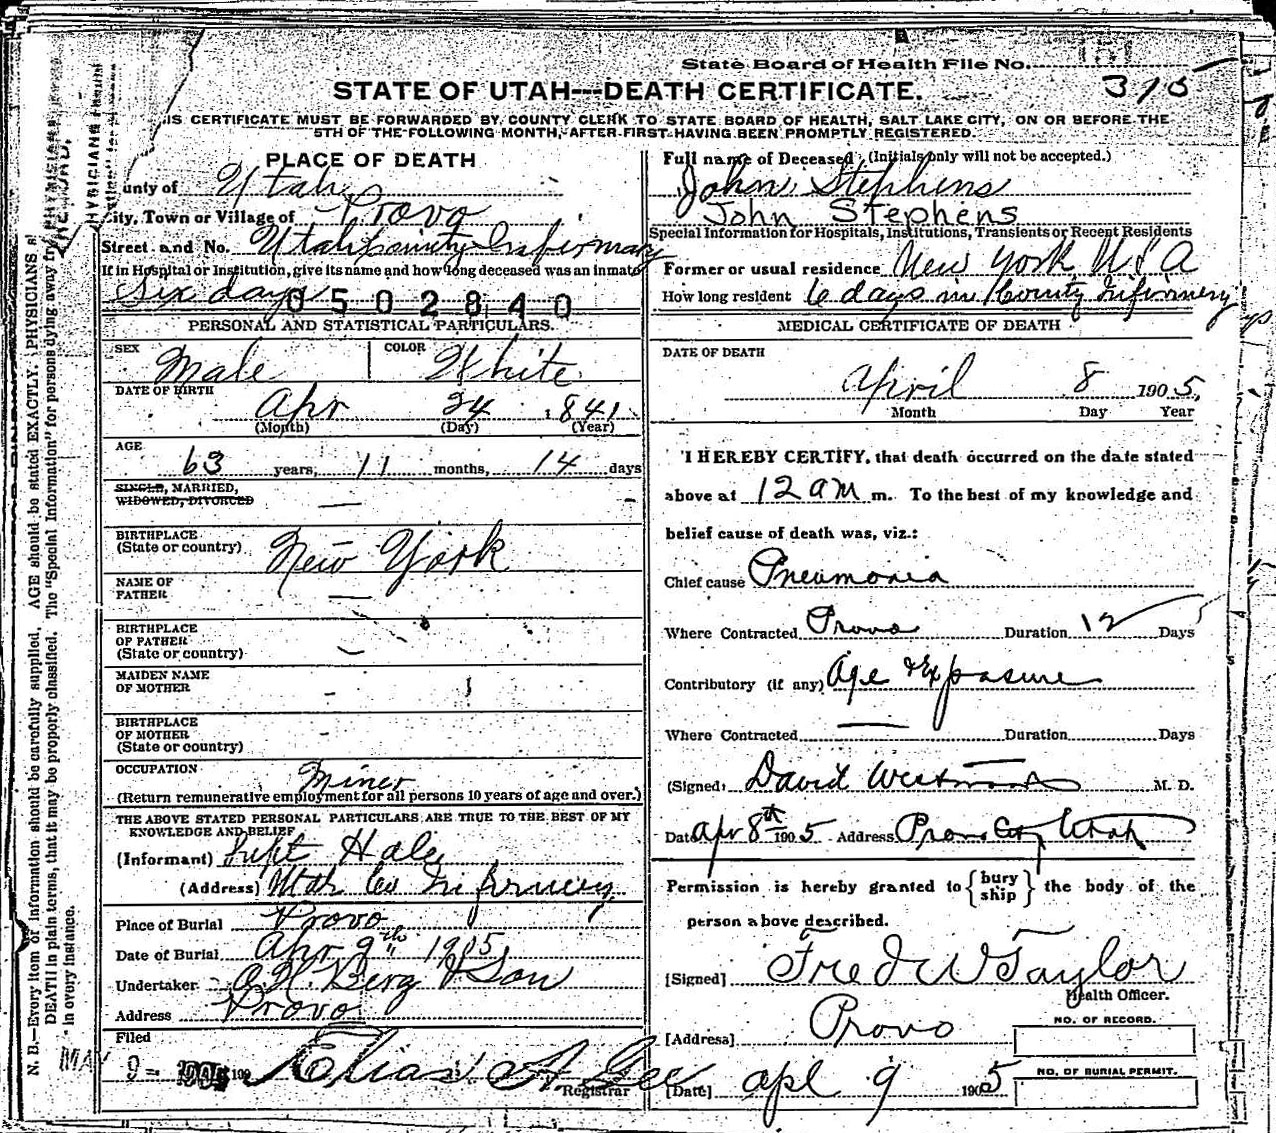 State Board of Health File No.
315
STATE OF UTAH---DEATH CERTIFICATE.
IS CERTIFICATE MUST BE FORWARDED BY COUNTY CLERK TO STATE BOARD OF HEALTH, SALT LAKE CITY, ON OR BEFORE THE
5TH OF THE FOLLOWING MONTH, AFTER FIRST HAVING BEEN PROMPTLY REGISTERED.
PLACE OF DEATH
unty of Utah
City, Town or Village of Provo
Street and No. Utah County Infirmary
If in Hospital or Institution, give its name and how long deceased was an inmate
Six days
0502840
PERSONAL AND STATISTICAL PARTICULARS.
SEX Male COLOR White
DATE OF BIRTH
Apr 24 1841
(Month) (Day) (Year)
AGE
63 years, 11 months, 14 days
SINGLE, MARRIED,
WIDOWED, DIVORCED —
BIRTHPLACE
(State or country) New York
NAME OF
FATHER —
BIRTHPLACE
OF FATHER
(State or country) —
MAIDEN NAME
OF MOTHER -
BIRTHPLACE
OF MOTHER -
(State or country)
OCCUPATION Miner
(Return remunerative employment for all persons 10 years of age and over.)
THE ABOVE STATED PERSONAL PARTICULARS ARE TRUE TO THE BEST OF MY
KNOWLEDGE AND BELIEF
(Informant) Supt Hale
(Address) Utah Co Infirmary
Place of Burial Provo
Date of Burial Apr 9th 1905
Undertaker O.H. Berg & Son
Address Provo
Filed
MAY 9 - 1905 190 Elias A. Gee
Registrar
Full name of Deceased (Initials only will not be accepted.)
John Stephens
John Stephens
Special Information for Hospitals, Institutions, Transients or Recent Residents
Former or usual residence New York U S A
How long resident 6 days in County Infirmery
MEDICAL CERTIFICATE OF DEATH
DATE OF DEATH
April 8 1905,
Month Day Year
I HEREBY CERTIFY, that death occurred on the date stated
above at 12 am m. To the best of my knowledge and
belief cause of death was, viz.:
Chief cause Pneumonia
Where Contracted Provo Duration 12 Days
Contributory (if any) Age & Exposure
Where Contracted — Duration Days
(Signed) David Westwood M. D.
Date Apr 8th 1905 Address Provo City Utah
Permission is hereby granted to {bury ship} the body of the
person above described.
[Signed] Fred W Taylor
Health Officer.
[Address] Provo
NO. OF RECORD.
NO. OF BURIAL PERMIT.
[Date] apl 9 1905
N. B.—Every item of information should be carefully supplied. AGE should be stated EXACTLY. PHYSICIANS s
DEATH in plain terms, that it may be properly classified. The "Special Information" for persons dying away fr
in every instance.